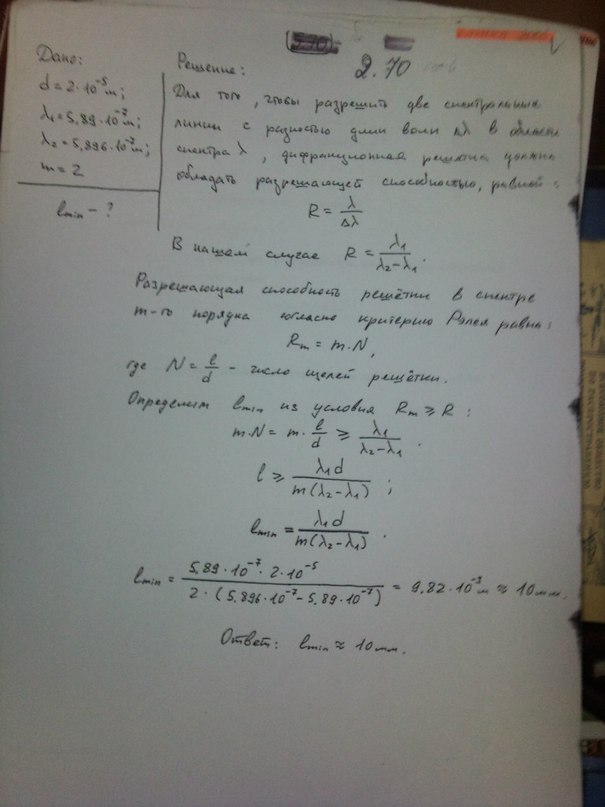 2.70
Дано:
d = 2·10⁻⁵ м;
λ₁ = 5,89·10⁻⁷ м;
λ₂ = 5,896·10⁻⁷ м;
m = 2
lmin – ?
Решение:
Для того, чтобы разрешить две спектральные
линии с разностью длин волн Δλ в области
спектра λ, дифракционная решётка должна
обладать разрешающей способностью, равной:
R = λ/Δλ
В нашем случае R = λ₁/(λ₂ – λ₁).
Разрешающая способность решётки в спектре
m-го порядка согласно критерию Рэлея равна:
Rₘ = m·N,
где N = l/d – число щелей решётки.
Определим lmin из условия Rₘ ≥ R:
m·N = m·l/d ≥ λ₁/(λ₂ – λ₁).
l ≥ λ₁d/(m(λ₂ – λ₁));
lmin = λ₁d/(m(λ₂ – λ₁)).
lmin = 5,89·10⁻⁷·2·10⁻⁵/(2·(5,896·10⁻⁷ – 5,89·10⁻⁷)) = 9,82·10⁻³ м ≈ 10 мм.
Ответ: lmin ≈ 10 мм.